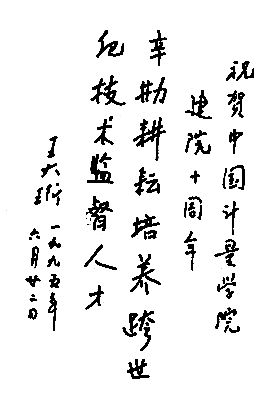 祝賀中国计量学院
建院十周年
辛勤耕耘培养跨世
纪技术监督人才
王大珩
一九九五年
六月廿二日